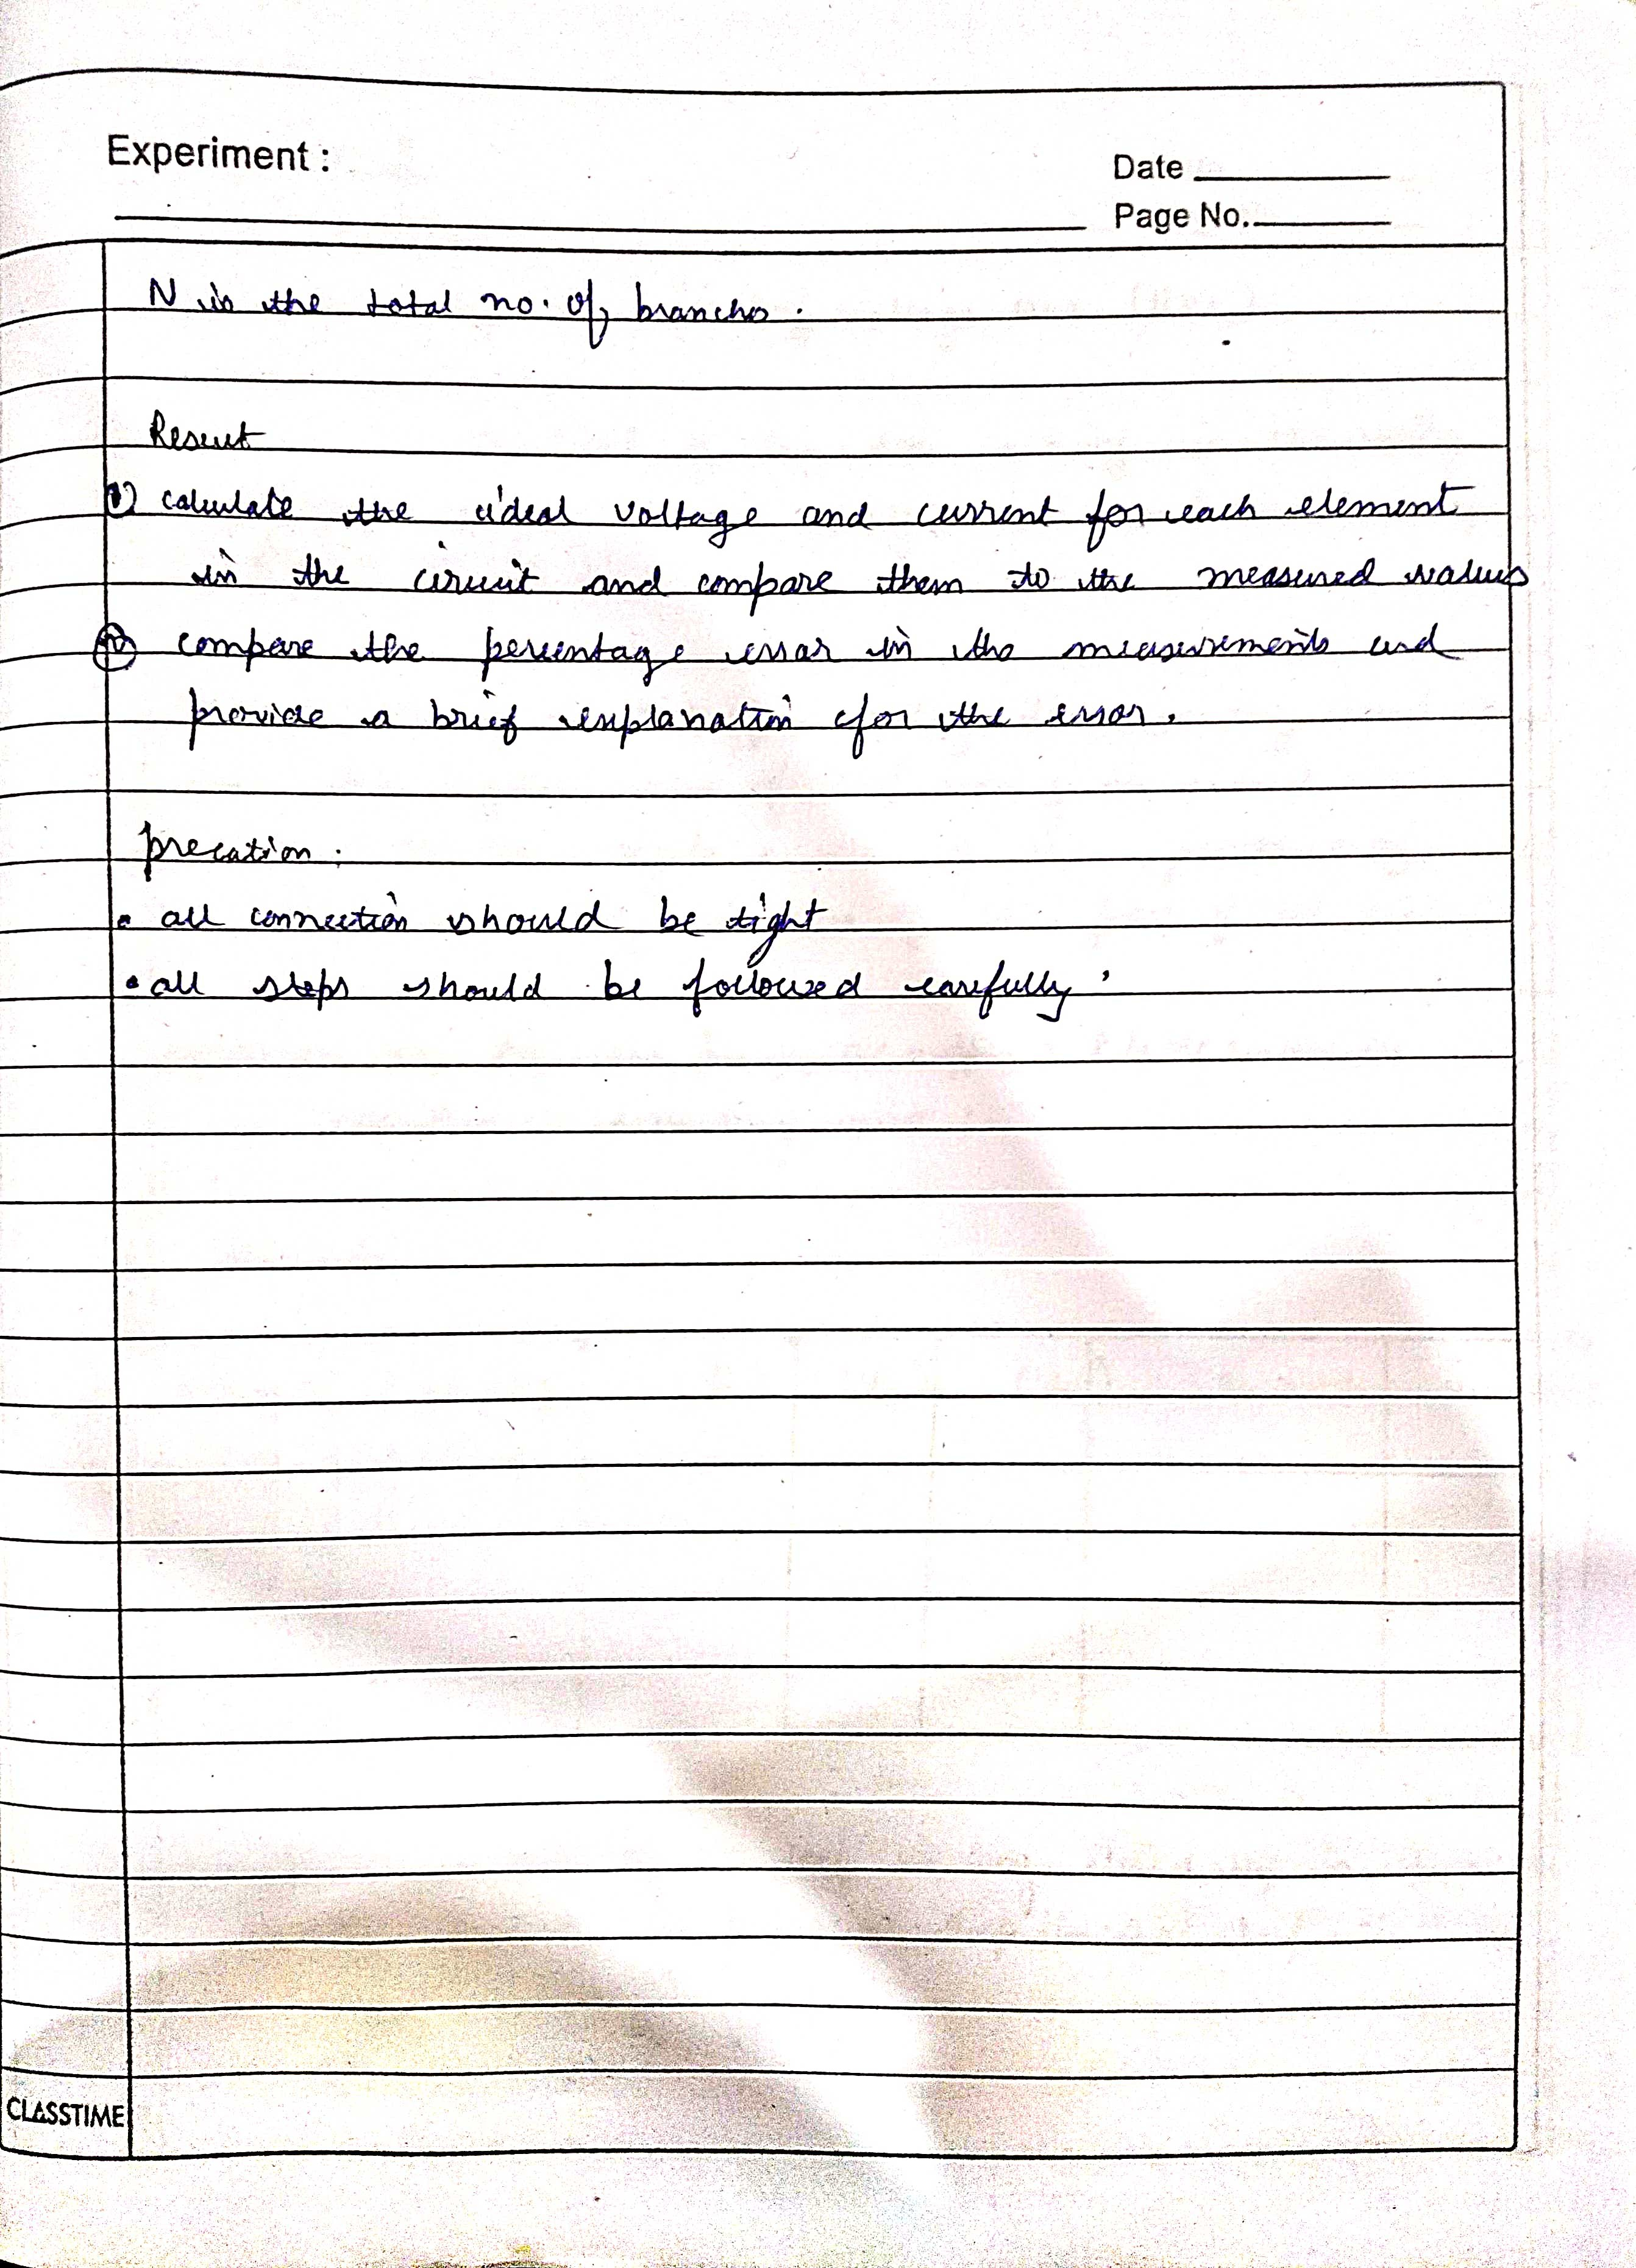 Experiment :
Date
Page No.
N is the total no. of branches.
Result
1) calculate the ideal voltage and current for each element
in the circuit and compare them to the measured values
compare the percentage error in the measurements and
provide a brief explanation for the error.
precation :
• all connection should be tight
• all steps should be followed carefully.
CLASSTIME